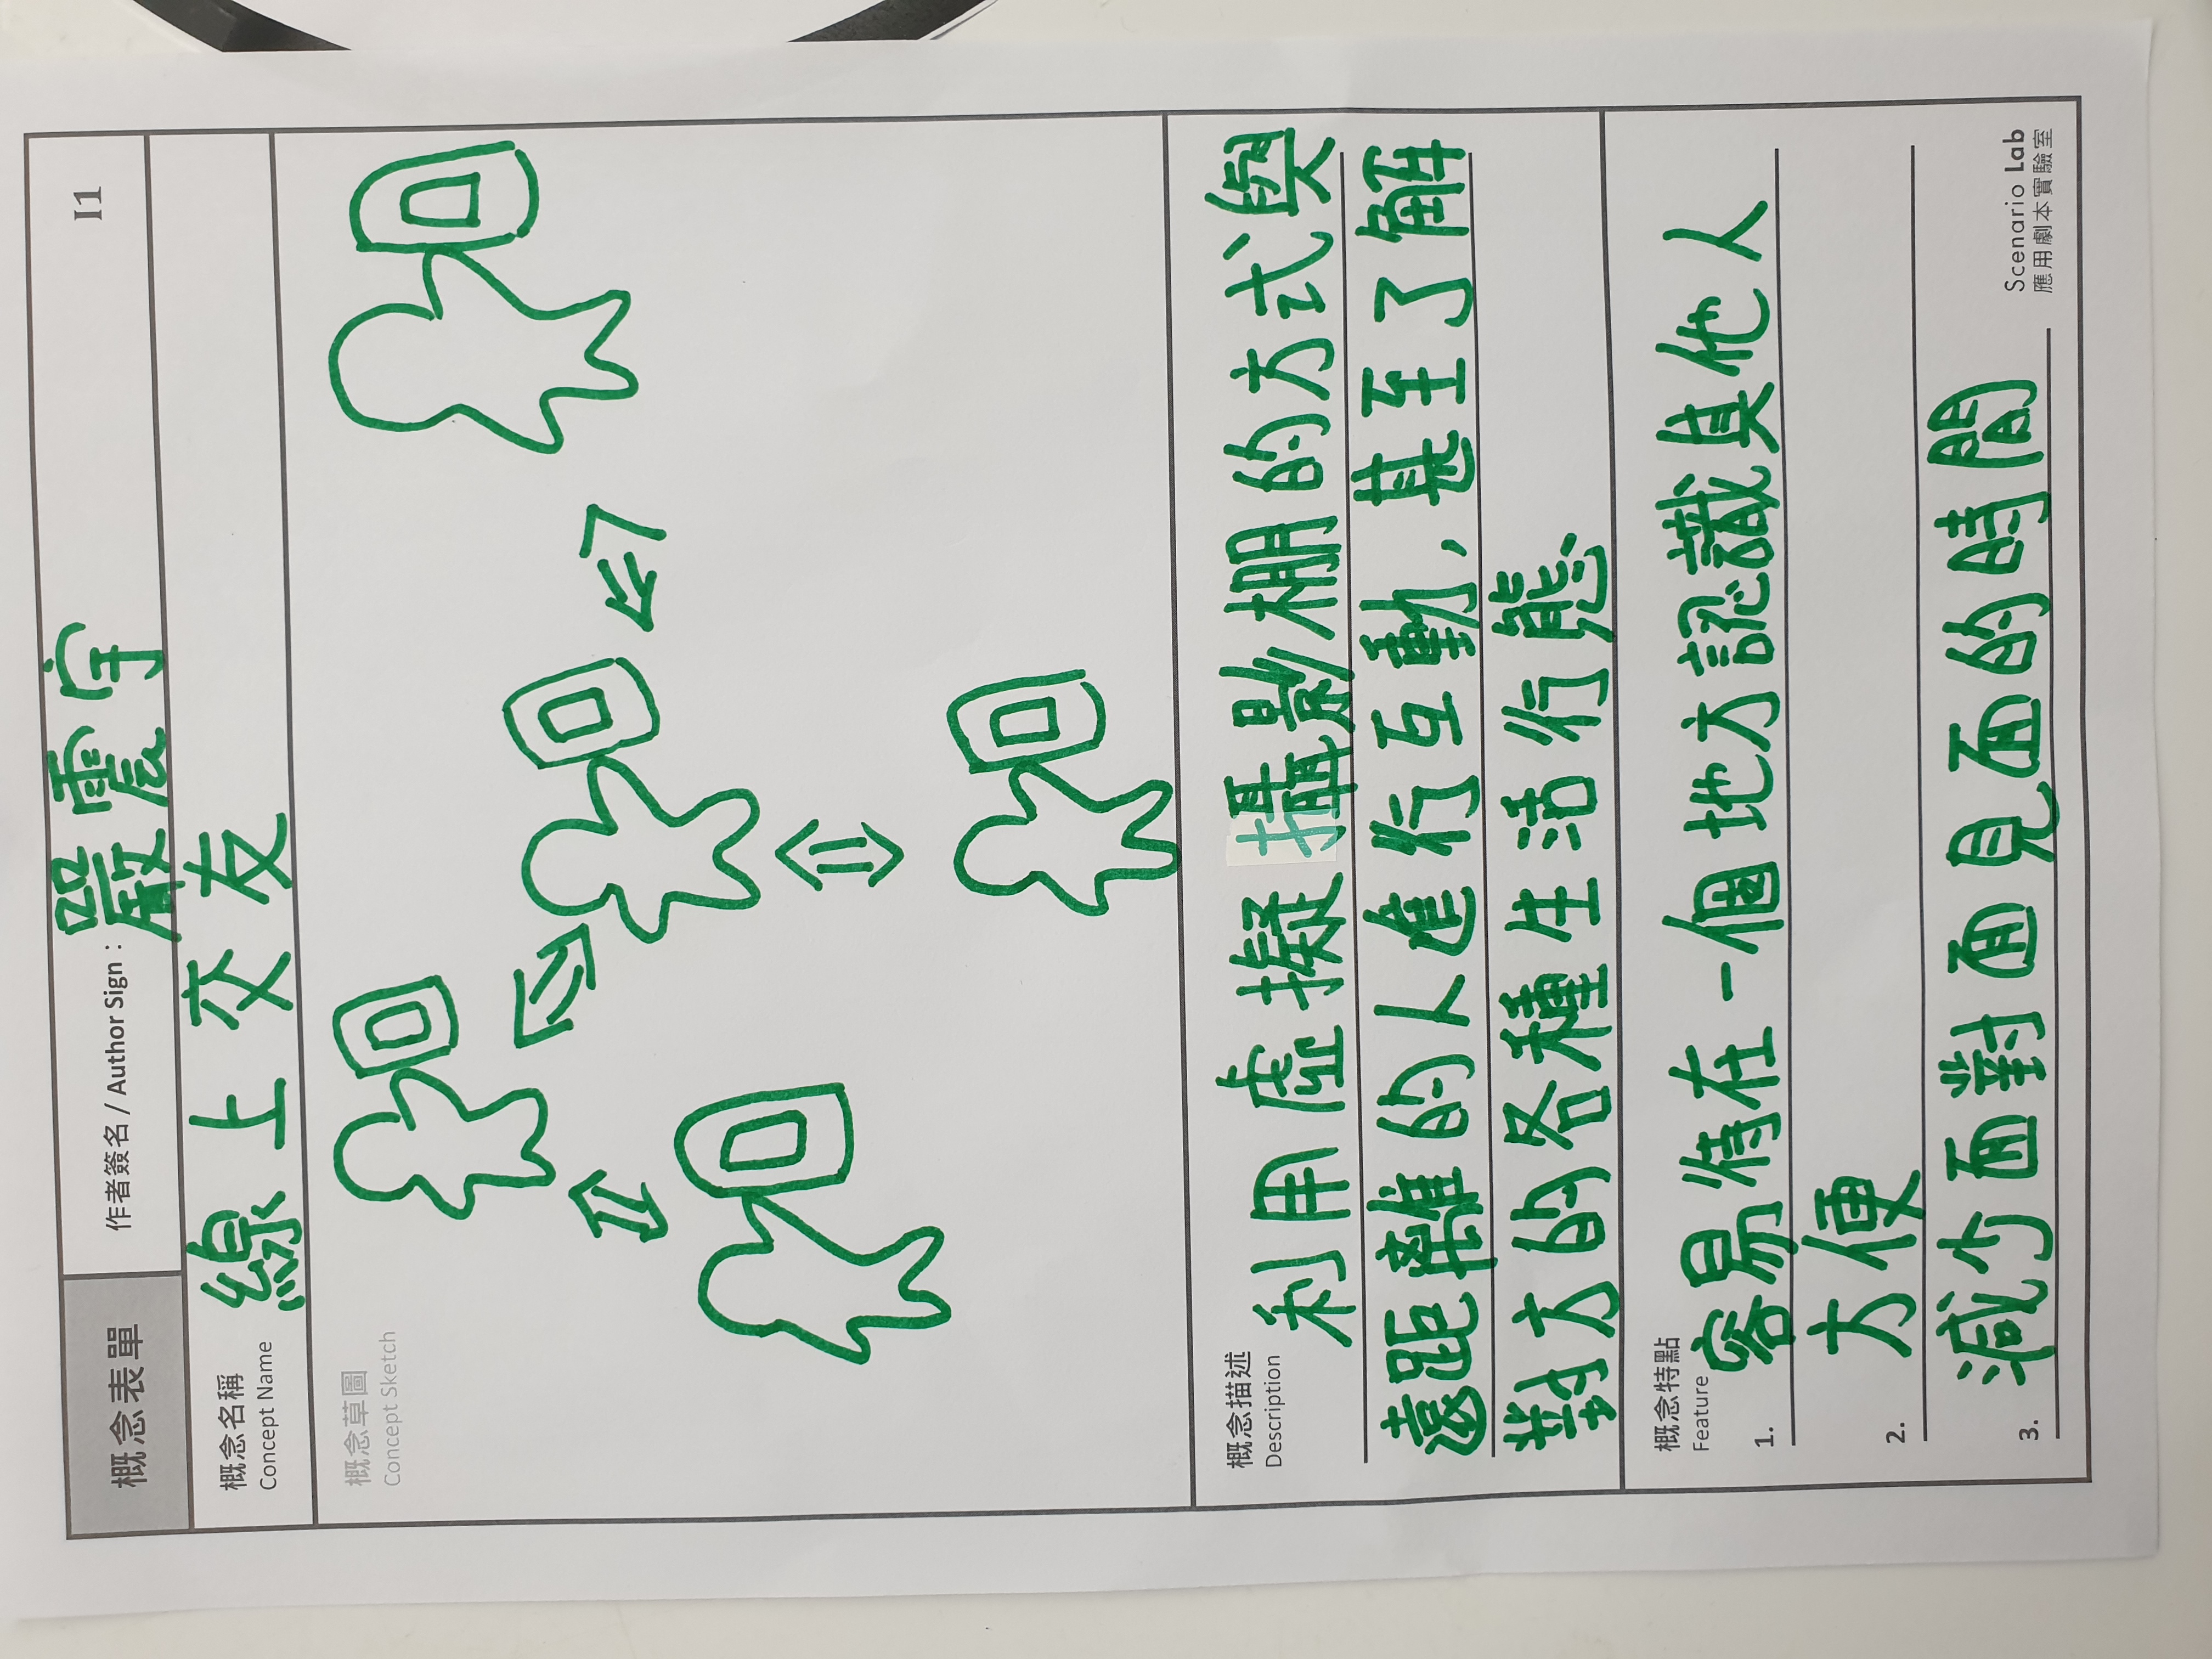 概念表單
作者簽名 / Author Sign：嚴震宇
I1
概念名稱
Concept Name
線上交友
概念草圖
Concept Sketch
概念描述
Description
利用虛擬攝影棚的方式與
遠距離的人進行互動，甚至了解
對方的各種生活行態
概念特點
Feature
1. 容易待在一個地方認識其他人
2. 方便
3. 減少面對面見面的時間
Scenario Lab
應用劇本實驗室